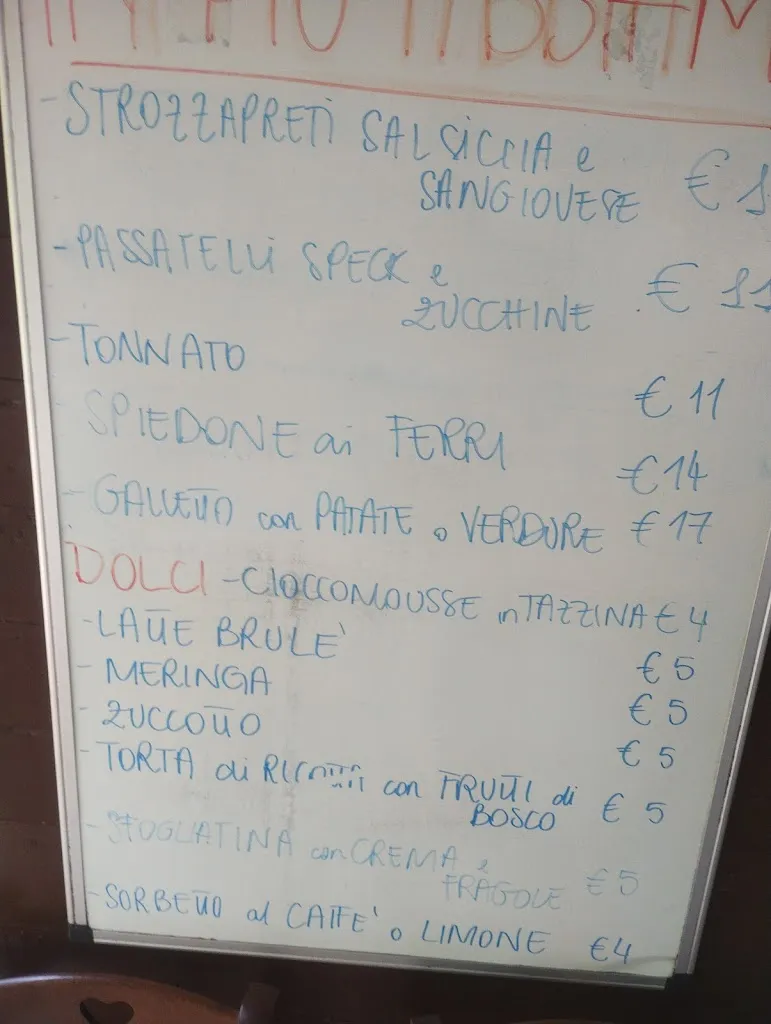 IN PIÙ ABBIAM
- STROZZAPRETI SALSICCIA e
SANGIOVESE €
- PASSATELLI SPECK e
ZUCCHINE € 11
- TONNATO € 11
- SPIEDONE ai FERRI € 14
- GALLETTO con PATATE o VERDURE € 17
DOLCI - CIOCCOMOUSSE in TAZZINA € 4
- LATTE BRULE' € 5
- MERINGA € 5
- ZUCCOTTO € 5
- TORTA di RICOTTA con FRUTTI di
BOSCO € 5
- SFOGLIATINA con CREMA e
FRAGOLE € 5
- SORBETTO al CAFFE' o LIMONE €4